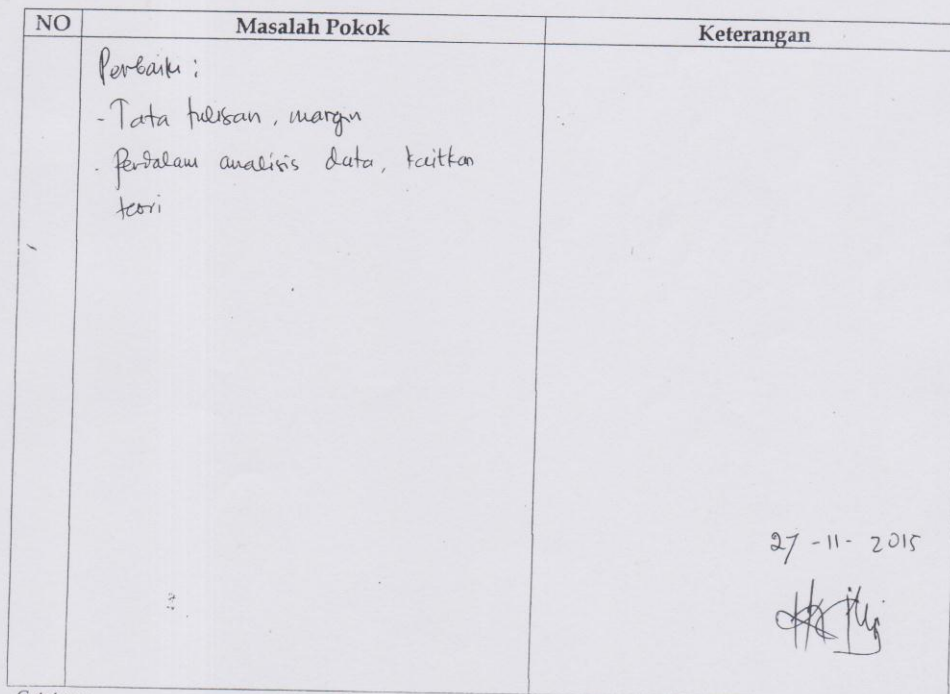 NO Masalah Pokok Keterangan
Perbaiki :
- Tata tulisan, margin
- Perdalam analisis data, kaitkan
teori
27 - 11 - 2015